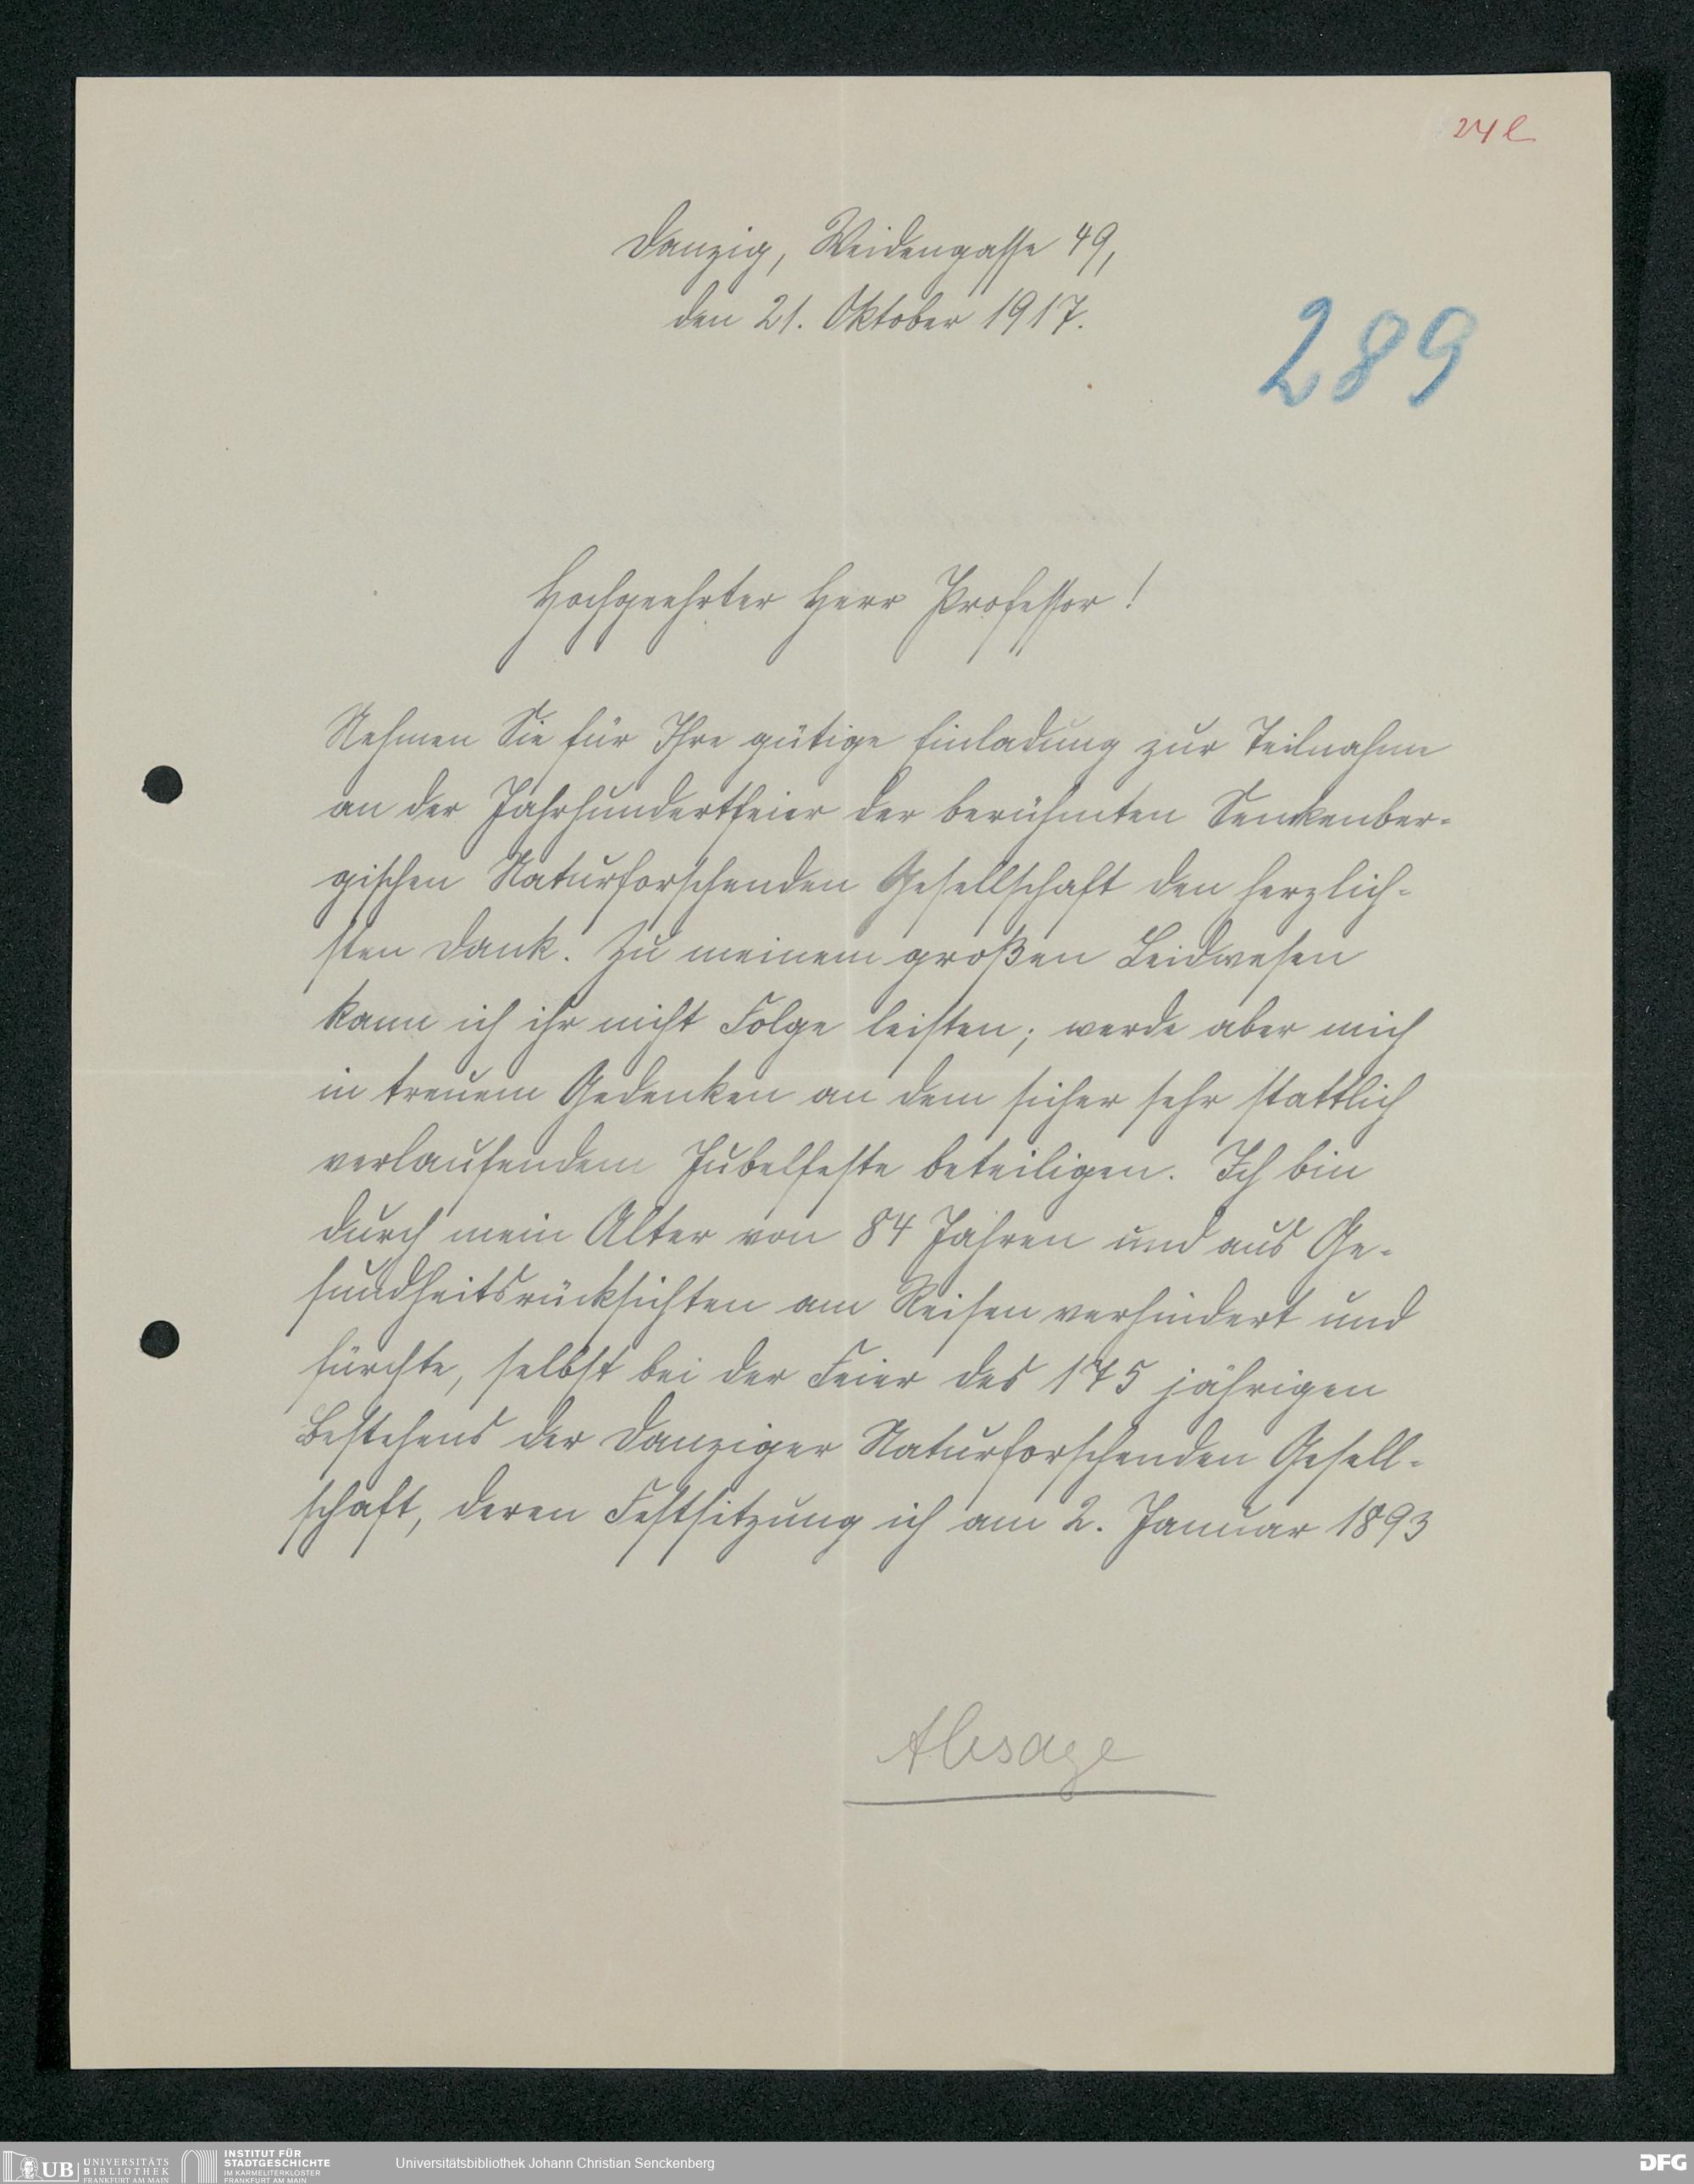 24 e
Danzig, Weidengasse 49,
den 21. Oktober 1917.
289
Hochgeehrter Herr Professor!
Nehmen Sie für Ihre gütige Einladung zur Teilnahme
an der Jahrhundertfeier der berühmten Senkenber-
gischen Naturforschenden Gesellschaft den herzlich-
sten Dank. Zu meinem großen Leidwesen
kann ich ihr nicht Folge leisten; werde aber mich
in treuem Gedenken an dem sicher sehr stattlich
verlaufendem Jubelfeste beteiligen. Ich bin
durch mein Alter von 84 Jahren und aus Ge-
sundheitsrücksichten am Reisen verhindert und
fürchte, selbst bei der Feier des 175 jährigen
Bestehens der Danziger Naturforschenden Gesell-
schaft, deren Festsitzung ich am 2. Januar 1893
Absage
UB UNIVERSITÄTS
BIBLIOTHEK
FRANKFURT AM MAIN
INSTITUT FÜR
STADTGESCHICHTE
IM KARMELITERKLOSTER
FRANKFURT AM MAIN
Universitätsbibliothek Johann Christian Senckenberg
DFG